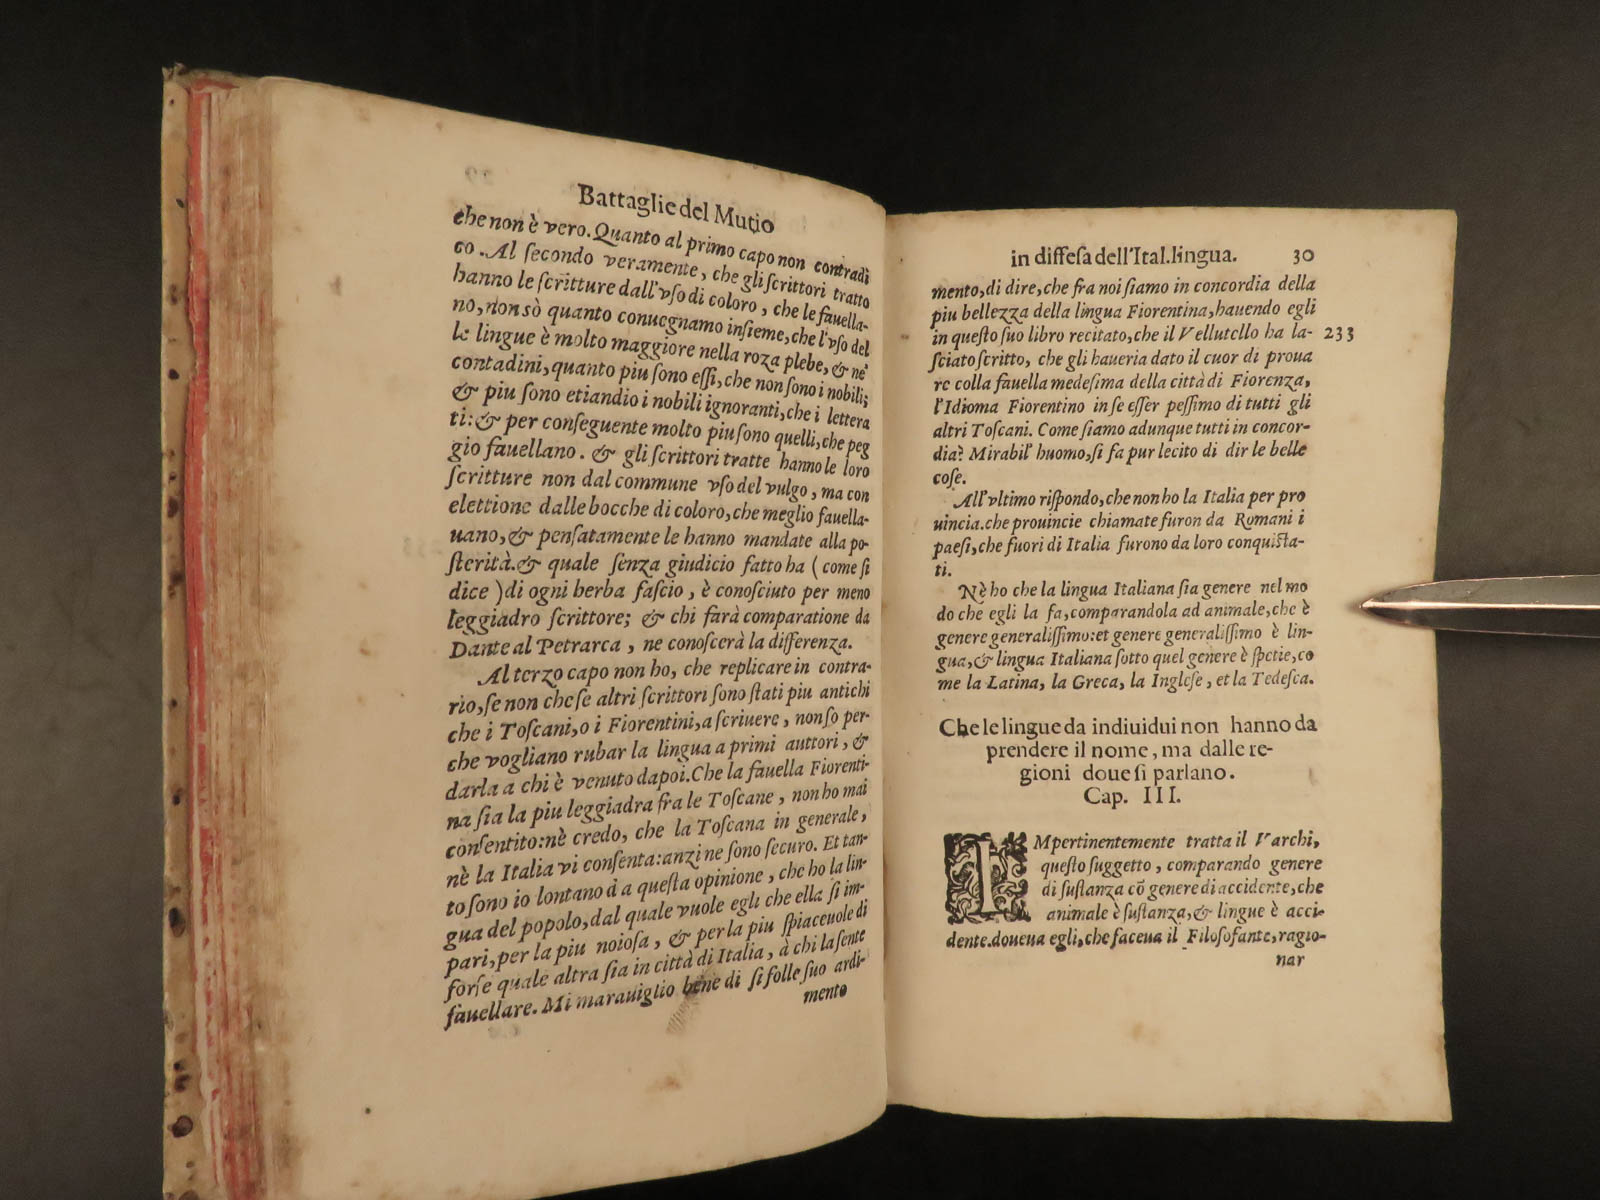 Battaglie del Mutio
che non è vero. Quanto al primo capo non contradi
co. Al ſecondo veramente, che gli ſcrittori tratto
hanno le ſcritture dall'vſo di coloro, che le fauella-
no, non sò quanto conuegnamo inſieme, che l'vſo del
le lingue è molto maggiore nella roza plebe, & ne'
contadini, quanto piu ſono eſſi, che non ſono i nobili;
& piu ſono etiandio i nobili ignoranti, che i lettera
ti: & per conſeguente molto piu ſono quelli, che peg
gio fauellano. & gli ſcrittori tratte hanno le loro
ſcritture non dal commune vſo del vulgo, ma con
elettione dalle bocche di coloro, che meglio fauella-
uano, & penſatamente le hanno mandate alla po-
ſterità. & quale ſenza giudicio fatto ha ( come ſi
dice ) di ogni herba faſcio, è conoſciuto per meno
leggiadro ſcrittore; & chi farà comparatione da
Dante al Petrarca, ne conoſcerà la differenza.
Al terzo capo non ho, che replicare in contra-
rio, ſe non che ſe altri ſcrittori ſono ſtati piu antichi
che i Toſcani, o i Fiorentini, a ſcriuere, non ſo per-
che vogliano rubar la lingua a primi auttori, &
darla a chi è venuto dapoi. Che la fauella Fiorenti-
na ſia la piu leggiadra fra le Toſcane, non ho mai
conſentito: nè credo, che la Toſcana in generale,
nè la Italia vi conſenta: anzi ne ſono ſecuro. Et tan-
to ſono io lontano da queſta opinione, che ho la lin-
gua del popolo, dal quale vuole egli che ella ſi im-
pari, per la piu noioſa, & per la piu ſpiaceuole di
forſe quale altra ſia in città di Italia, à chi la ſente
fauellare. Mi marauiglio bene di ſi folle ſuo ardi-
mento
in diffeſa dell'Ital. lingua. 30
mento, di dire, che fra noi ſiamo in concordia della
piu bellezza della lingua Fiorentina, hauendo egli
in queſto ſuo libro recitato, che il Vellutello ha la- 233
ſciato ſcritto, che gli haueria dato il cuor di proua
re colla fauella medeſima della città di Fiorenza,
l'Idioma Fiorentino in ſe eſſer peſſimo di tutti gli
altri Toſcani. Come ſiamo adunque tutti in concor-
dia? Mirabil' huomo, ſi fa pur lecito di dir le belle
coſe.
All'vltimo riſpondo, che non ho la Italia per pro
uincia. che prouincie chiamate furon da Romani i
paeſi, che fuori di Italia furono da loro conquiſta-
ti.
Nè ho che la lingua Italiana ſia genere nel mo
do che egli la fa, comparandola ad animale, che è
genere generaliſſimo: et genere generaliſſimo è lin-
gua, & lingua Italiana ſotto quel genere è ſpetie, co
me la Latina, la Greca, la Ingleſe, et la Tedeſca.
Che le lingue da indiuidui non hanno da
prendere il nome, ma dalle re-
gioni doue ſi parlano.
Cap. III.
IMpertinentemente tratta il Varchi,
queſto ſuggetto, comparando genere
di ſuſtanza cõ genere di accidente, che
animale è ſuſtanza, & lingue è acci-
dente. doueua egli, che faceua il Filoſofante, ragio-
nar